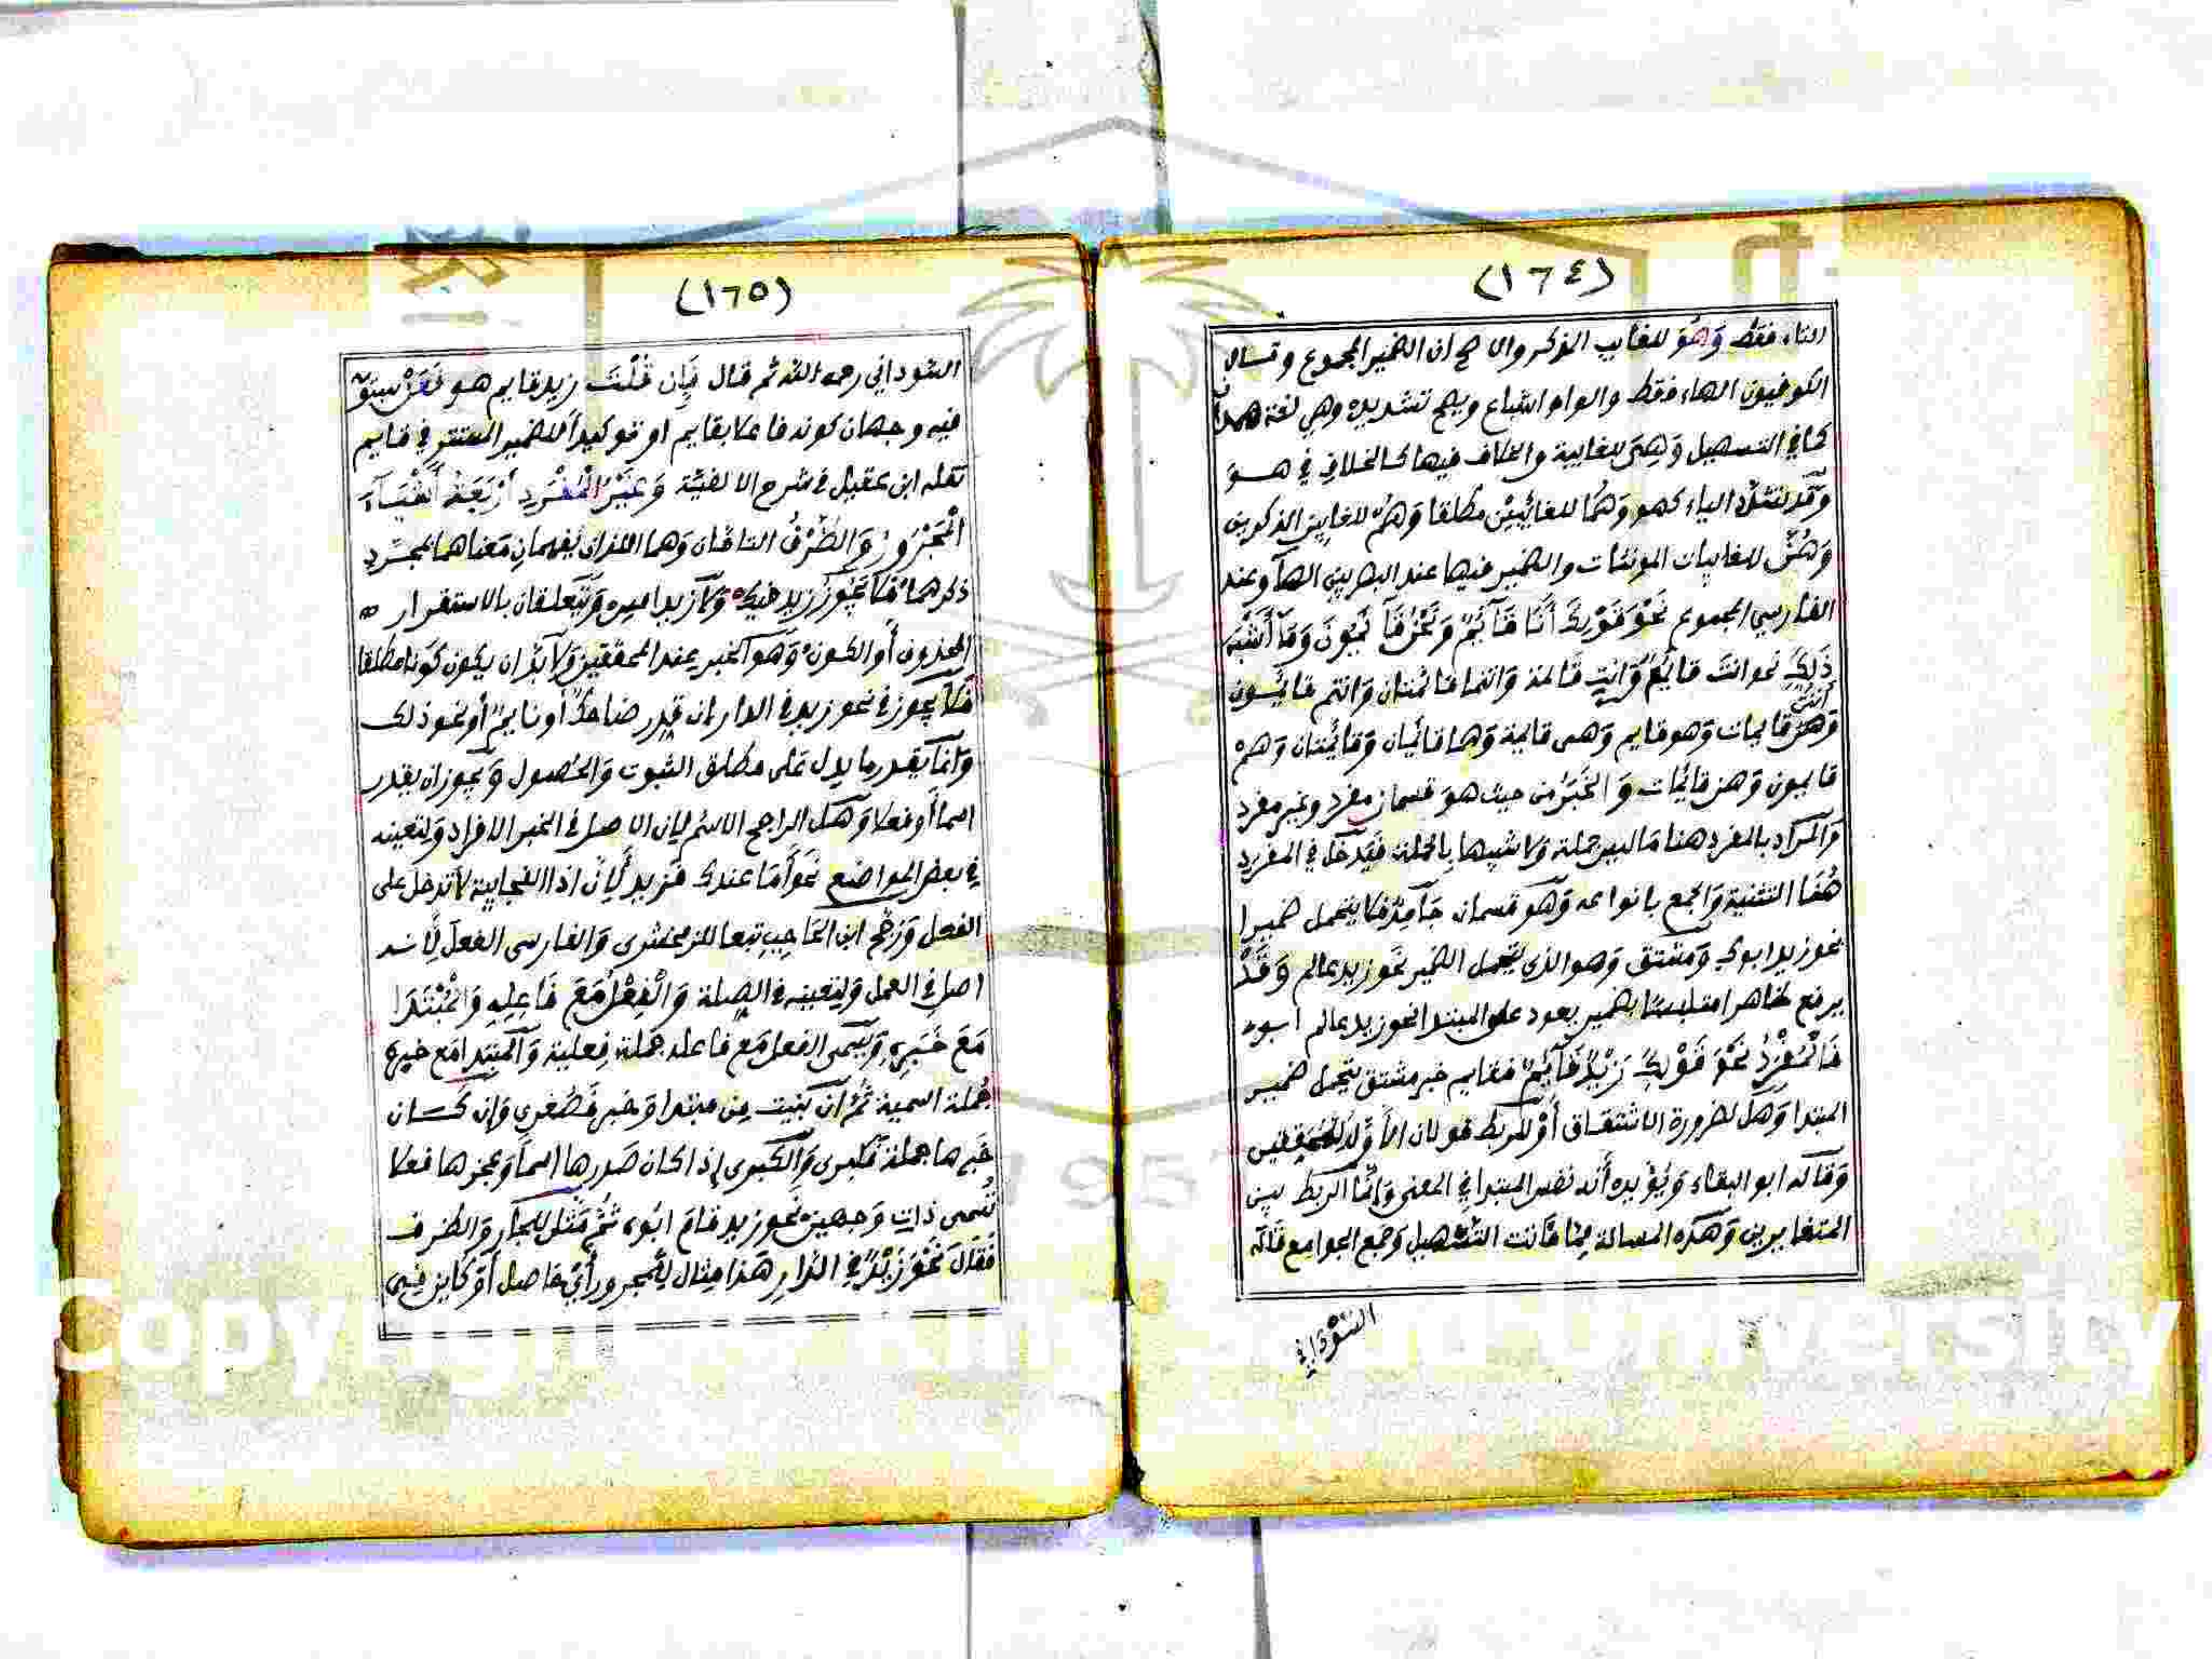 (١٦٤)
التاء فقط وَهُوَ للغايب المذكر والاصح ان الضمير المجموع وقال
الكوفيون الهاء فقط والواو اشباع ويصح تشديده وهي لغة همدان
كما في التسهيل وَهِيَ للغايبة والخلاف فيها كالخلاف في هو
وقد تشدد الياء كهو وَهُمَا للغائِبَيْنِ مطلقا وَهُمْ للغايبين المذكورين
وَهُنَّ للغايبات المونثات والضمير فيها عند البصريين الهآ وعند
الفارسي المجموع نَحْوَ قَوْلِكَ أَنَا قَآئِمٌ وَنَحْنُ قَآئِمُونَ وَمَآ أَشْبَهَ
ذَلِكَ نحو انتَ قايمٌ وَانتِ قَائمة وَانتما قائمتان وَانتم قائمون
أنتن
وَهنّ قايمات وَهو قايم وَهى قايمة وَهما قائمان وَقائمتان وَهم
قايمون وَهن قائمات وَالْخَبَرُ من حيث هوَ قسمان مفرد وغير مفرد
وَالمراد بالمفرد هنا مَا ليس جملة وَلا شبيها بالجملة فيَدخل في المفرد
هُنَا التثنية وَالجمع بانواعه وَهو قسمان جَامِدٌ فلا يتحمل ضميرا
نحو زيد ابوك وَمشتق وَهو الذي يتحمل الضمير نحو زيد عالم وَقَدْ
يرفع ظاهرا متلبسًا بضمير يعود على المبتدا نحو زيد عالم ابوه
فَالْمُفْرَدُ نَحْوَ قَوْلِكَ زَيْدٌ قَآئِمٌ فقايم خبر مشتق يتحمل ضمير
المبتدا وَهل لضرورة الاشتقاق أَوْ للربط قولان الأوَّل للمُحَقِقين
وَقاله ابو البقاء وَيُؤَيده أنه نفس المبتدا في المعنى وَإنَّما الربط بين
المتغايرين وَهذه المسالة مما فَاتت التسهيل وَجمع الجوامع قاله
السُّوْدَانِي
(١٦٥)
السوداني رحمه الله ثم قال فَإِن قُلْتَ زيد قايم هو
فيه وجهان كونه فاعلا بقايم او توكيداً للضمير المستتر في قايم
نقله ابن عقيل في شرح الالفية وَغَيْرُ الْمُفْرَدِ أَرْبَعَةُ أَشْيَآءَ
الْمَجْرُورُ وَالظَّرْفُ التامَّان وَهما اللذان يُفهمان مَعناهما بمجرّد
ذكرهما فَلا يَجُوز زيد فيك وَلا زيد امس وَيَتَعلقان بالاستقرار
المحذوف أو الكون وَهو الخبر عند المحققين وَلا بُدّ ان يكون كَونا مطلقا
فَلا يجوز في نحو زيد في الدار ان يقدر ضاحكٌ أو نايمٌ أو نحو ذلك
وَانما يقدر ما يدل عَلى مطلق الثبوت وَالحُصول وَيجوز ان يقدر
اسماً أو فعلا وَهل الراجح الاسم لِان الاصل في الخبر الافراد وَلِتعينه
في بعض المواضع نَحو أمَا عندك فَزيد لِأن اذا الفجايية لا تدخل على
الفعل وَرَجَّح ابن الحَاجِبِ تبعا للزمخشرى وَالفارسى الفعل لِأنه
اصل في العمل وَلِتعينه في الصِلة وَالْفِعْلُ مَعَ فَاعِلِهِ وَالْمُبْتَدَا
مَعَ خَبَرِهِ وَيُسمى الفعل مَع فاعله جملة فِعلية وَالمبتدا مَع خبره
جُملة اسمية ثُمَّ ان بُنِيت مِن مبتدا وَخبر فَصُغرى وَإن كَان
خَبرها جملة فكبرى وَالكبرى إذا كان صَدرها اسماً وَعجزها فعلا
تُسمى ذات وَجهين نحو زيد قامَ ابُوه ثُمَّ مَثَّل للجار وَالظرف
فَقَالَ نَحْوَ زَيْدٌ فِي الدَّارِ هَذا مِثال لِلمجرور أي حَاصل أَوْ كاين في